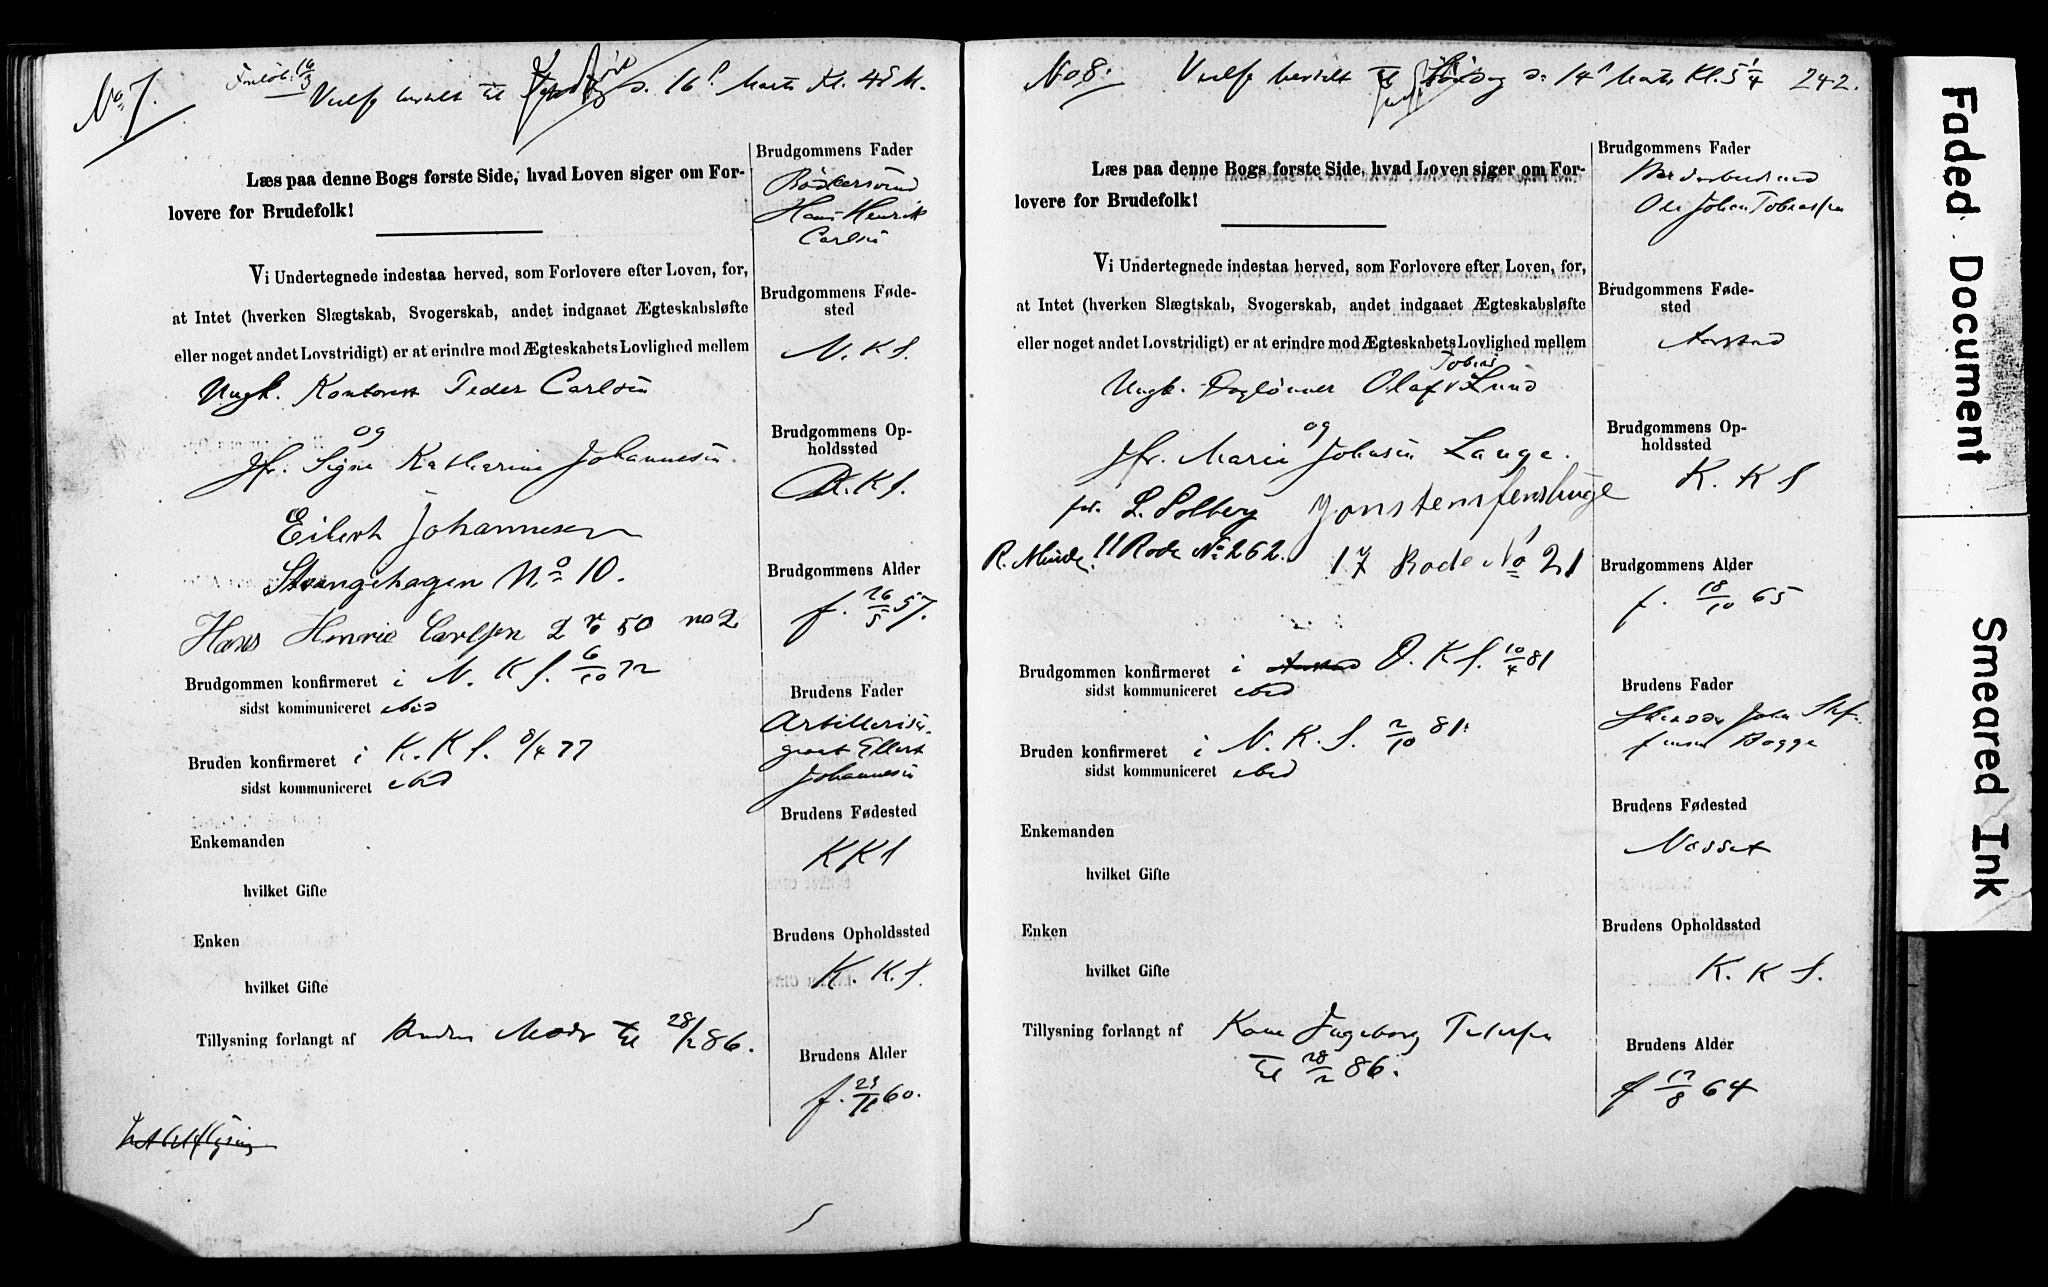 No 7.
Forlob. 16/3
Vielse bestilt til d. 16d Marts Kl. 4
Læs paa denne Bogs første Side, hvad Loven siger om For-
lovere for Brudefolk!
Vi Undertegnede indestaa herved, som Forlovere efter Loven, for,
at Intet (hverken Slægtskab, Svogerskab, andet indgaaet Ægteskabsløfte
eller noget andet Lovstridigt) er at erindre mod Ægteskabets Lovlighed mellem
Ungk. Kontorist Peder Carlsen
og
Jfr. Signe Katharine Johannesen
Eilert Johannesen
Strangehagen No 10.
Hans Henric Carlsen 2 50 no 2
Brudgommen konfirmeret i N. K S. 6/10 72
sidst kommuniceret ibid
Bruden konfirmeret i K. K S. 8/4 77
sidst kommuniceret ibid
Enkemanden
hvilket Gifte
Enken
hvilket Gifte
Tillysning forlangt af Brudens Moder til 28/2 86.
Brudgommens Fader
Bødkersvend
Hans Henrik
Carlsen
Brudgommens Føde-
sted
N. K S.
Brudgommens Op-
holdssted
K S.
Brudgommens Alder
f. 26/5 57.
Brudens Fader
Artilleriser-
geant Ellert
Johannesen
Brudens Fødested
K K S
Brudens Opholdssted
K. K. S.
Brudens Alder
f. 23/11 60.
No 8.
Vielse bestilt til d. 14d Marts Kl. 5 1/4
242.
Læs paa denne Bogs første Side, hvad Loven siger om For-
lovere for Brudefolk!
Vi Undertegnede indestaa herved, som Forlovere efter Loven, for,
at Intet (hverken Slægtskab, Svogerskab, andet indgaaet Ægteskabsløfte
eller noget andet Lovstridigt) er at erindre mod Ægteskabets Lovlighed mellem
Tobias
Ungk. Daglønner Olaf v Lund
og
Jfr. Marie Johnsen Lange.
for. L. Solberg
R. Munde. 11 Rode No 262. 17 Rode No 21
Brudgommen konfirmeret i D. K S. 10/4 81
sidst kommuniceret ibid
Bruden konfirmeret i N. K. S. 2/10 81.
sidst kommuniceret ibid
Enkemanden
hvilket Gifte
Enken
hvilket Gifte
Tillysning forlangt af Kone Ingeborg Petersen
til 28/2 86.
Brudgommens Fader
Ole Johan Tobiassen
Brudgommens Føde-
sted
Aarstad
Brudgommens Op-
holdssted
K. K S
Brudgommens Alder
f. 18/10 65
Brudens Fader
John
Bogge
Brudens Fødested
Næsset
Brudens Opholdssted
K. K S.
Brudens Alder
f 17/8 64
Faded Document
Smeared Ink